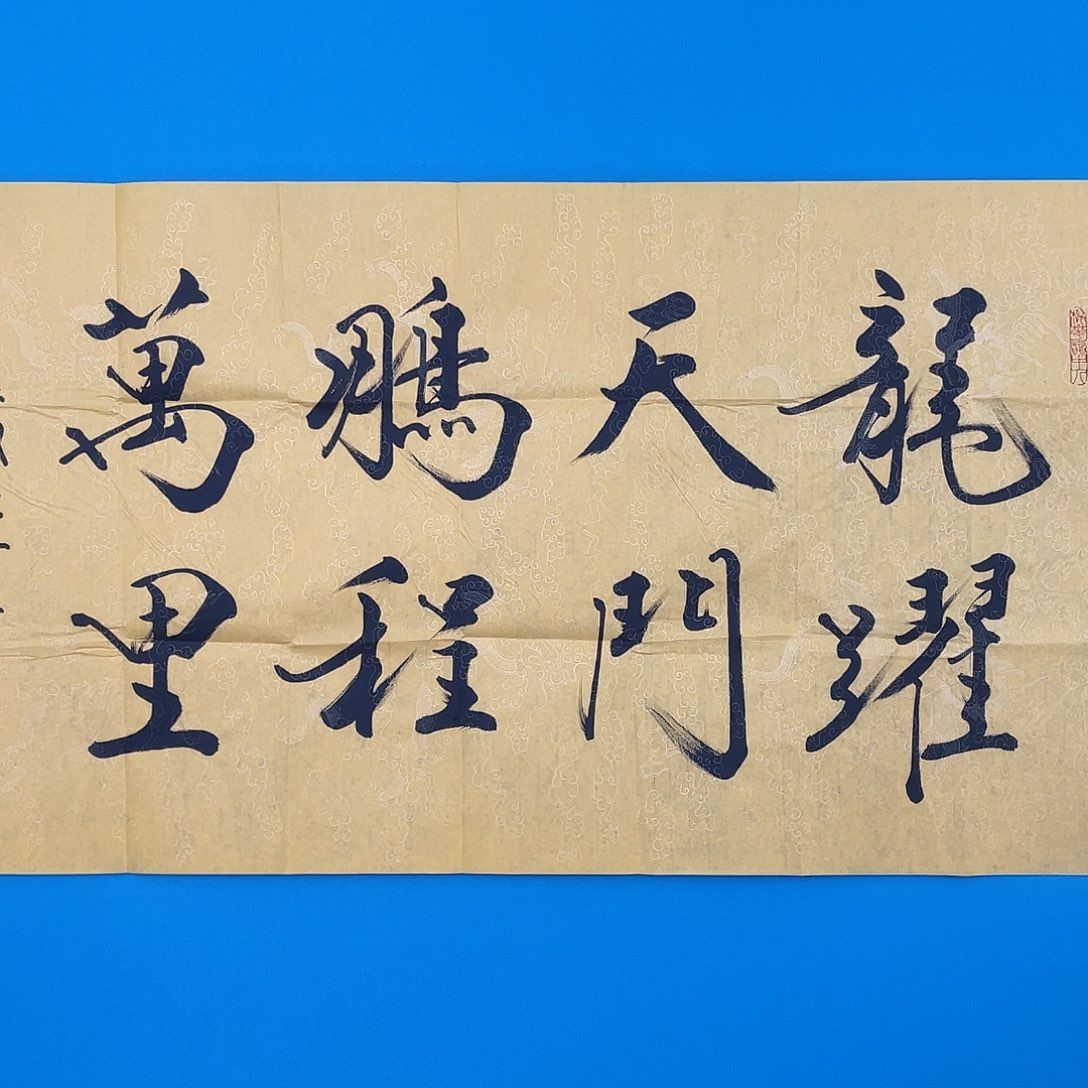 龍躍
天門
鵬程
萬里